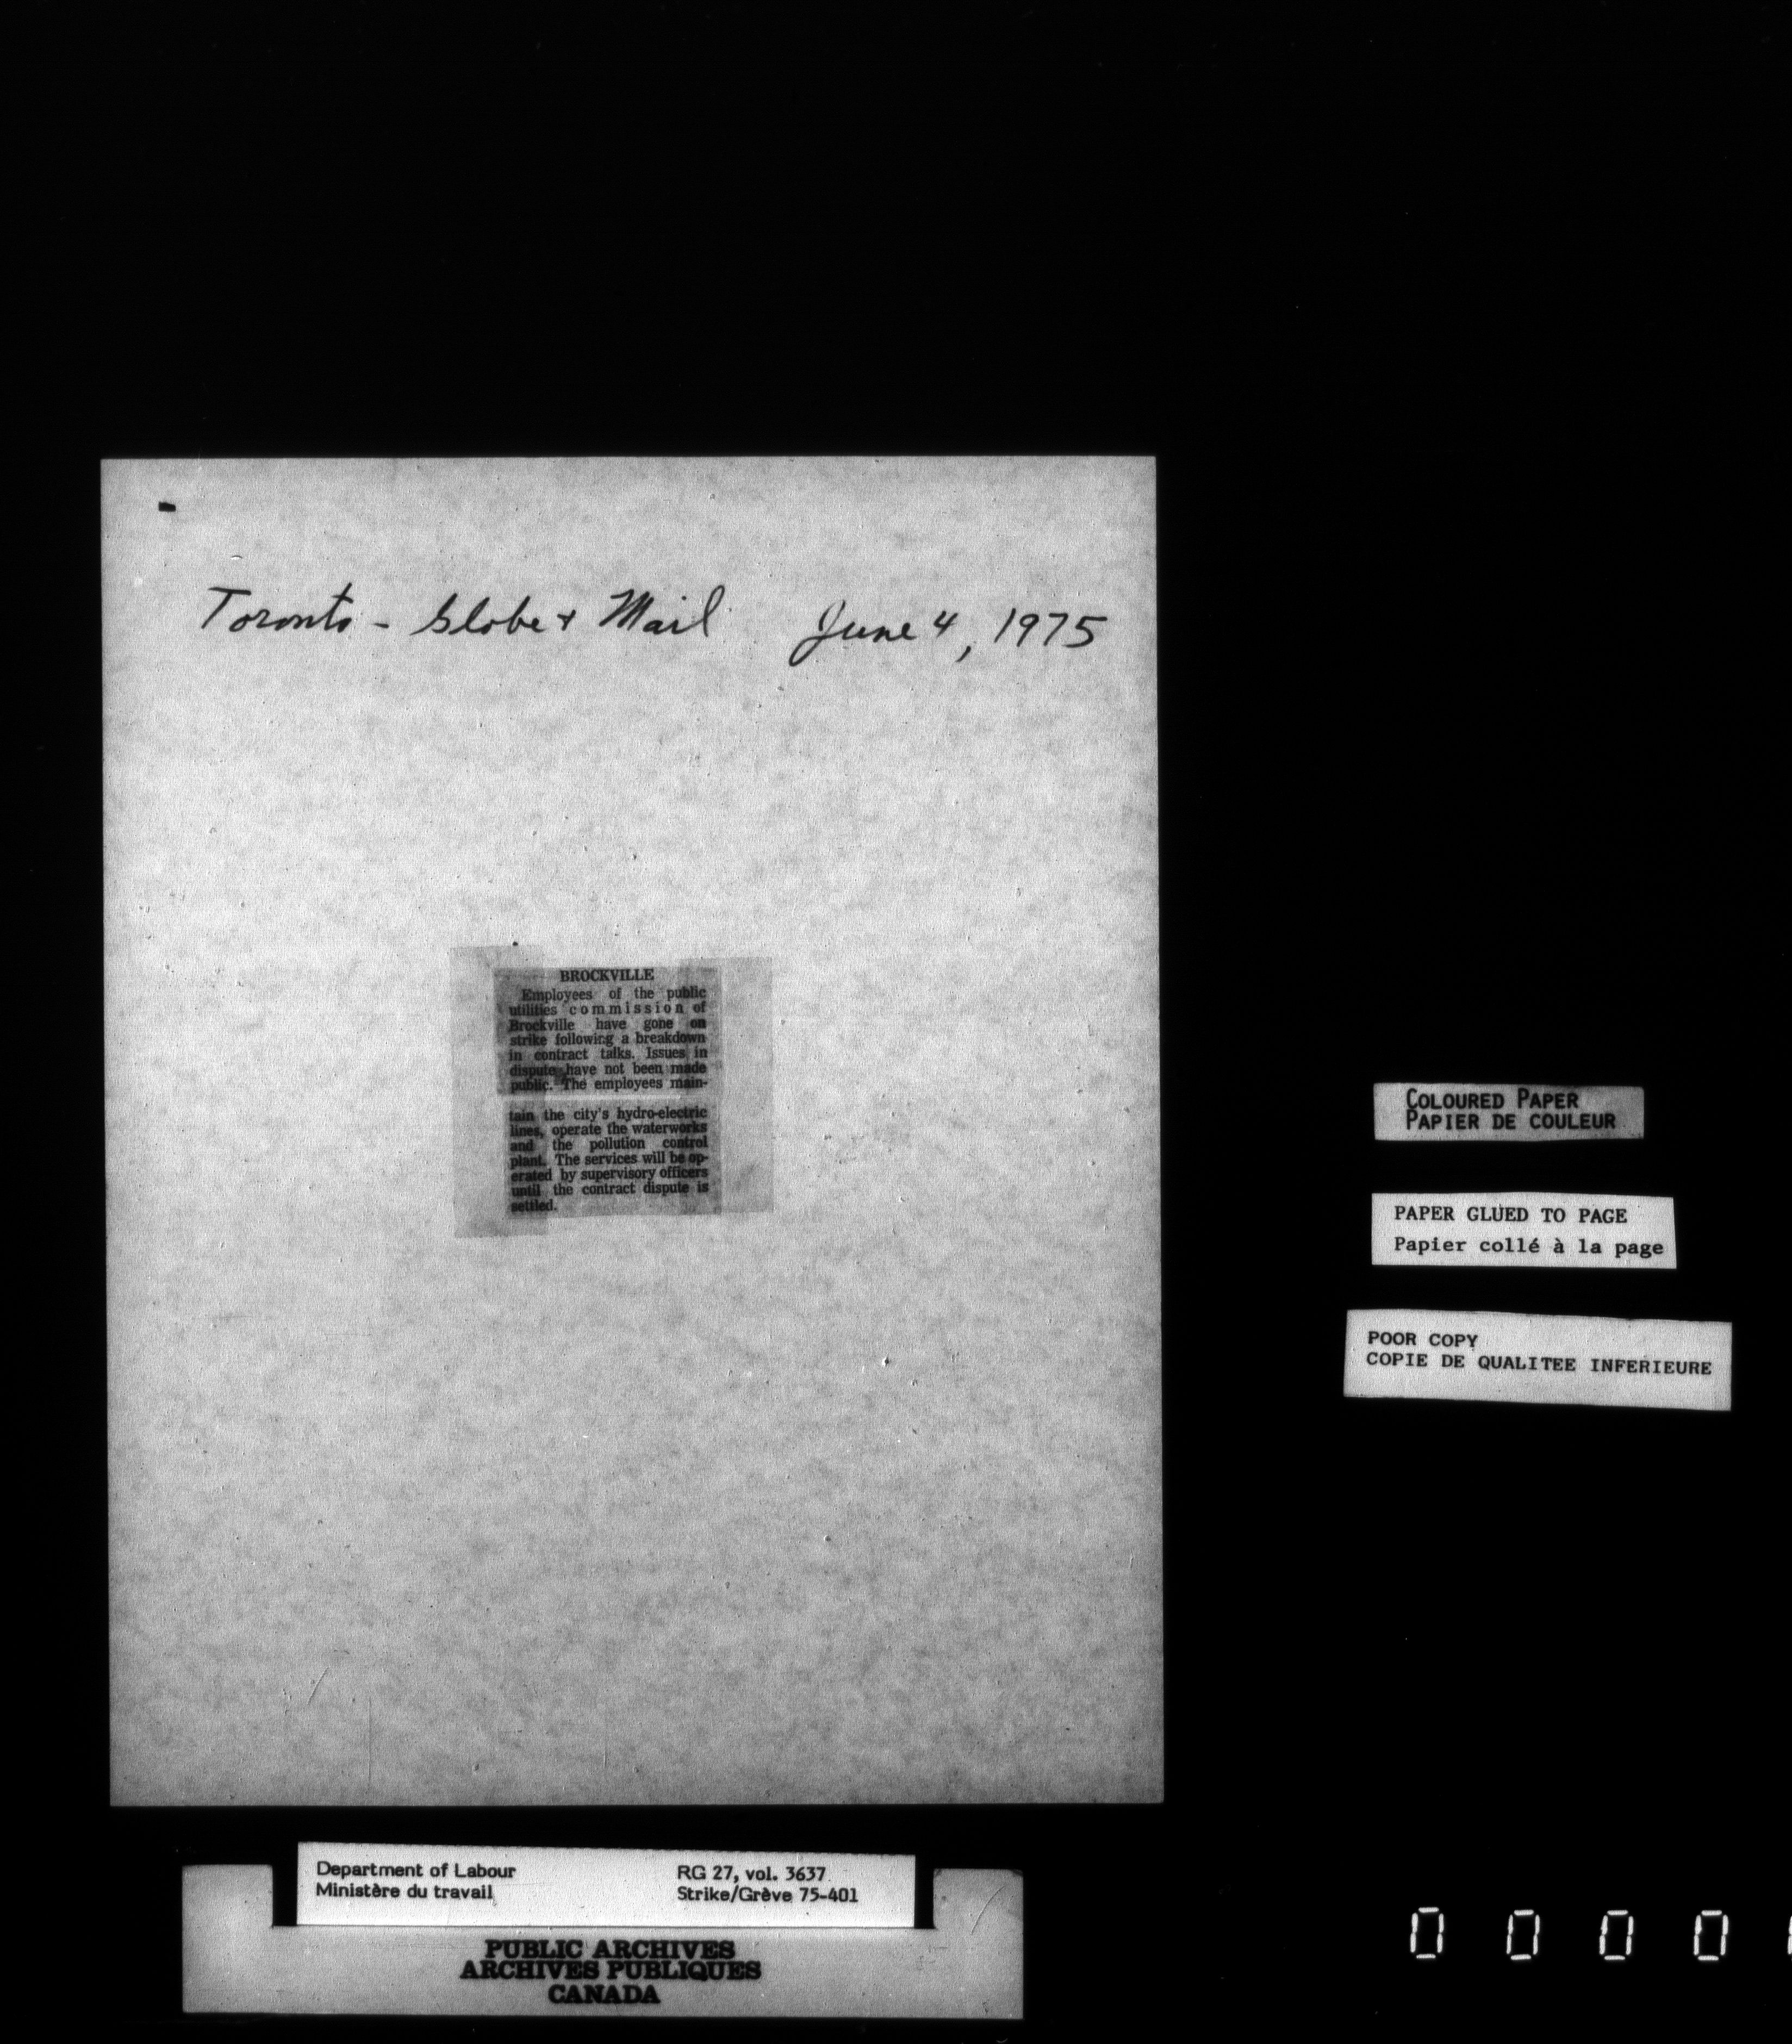 Toronto - Globe & Mail June 4, 1975
BROCKVILLE
Employees of the public
utilities commission of
Brockville have gone on
strike following a breakdown
in contract talks. Issues in
dispute have not been made
public. The employees main-
tain the city's hydro-electric
lines, operate the waterworks
and the pollution control
plant. The services will be op-
erated by supervisory officers
until the contract dispute is
settled.
COLOURED PAPER
PAPIER DE COULEUR
PAPER GLUED TO PAGE
Papier collé à la page
POOR COPY
COPIE DE QUALITEE INFERIEURE
Department of Labour
Ministère du travail
RG 27, vol. 3637
Strike/Grève 75-401
PUBLIC ARCHIVES
ARCHIVES PUBLIQUES
CANADA
0 0 0 0